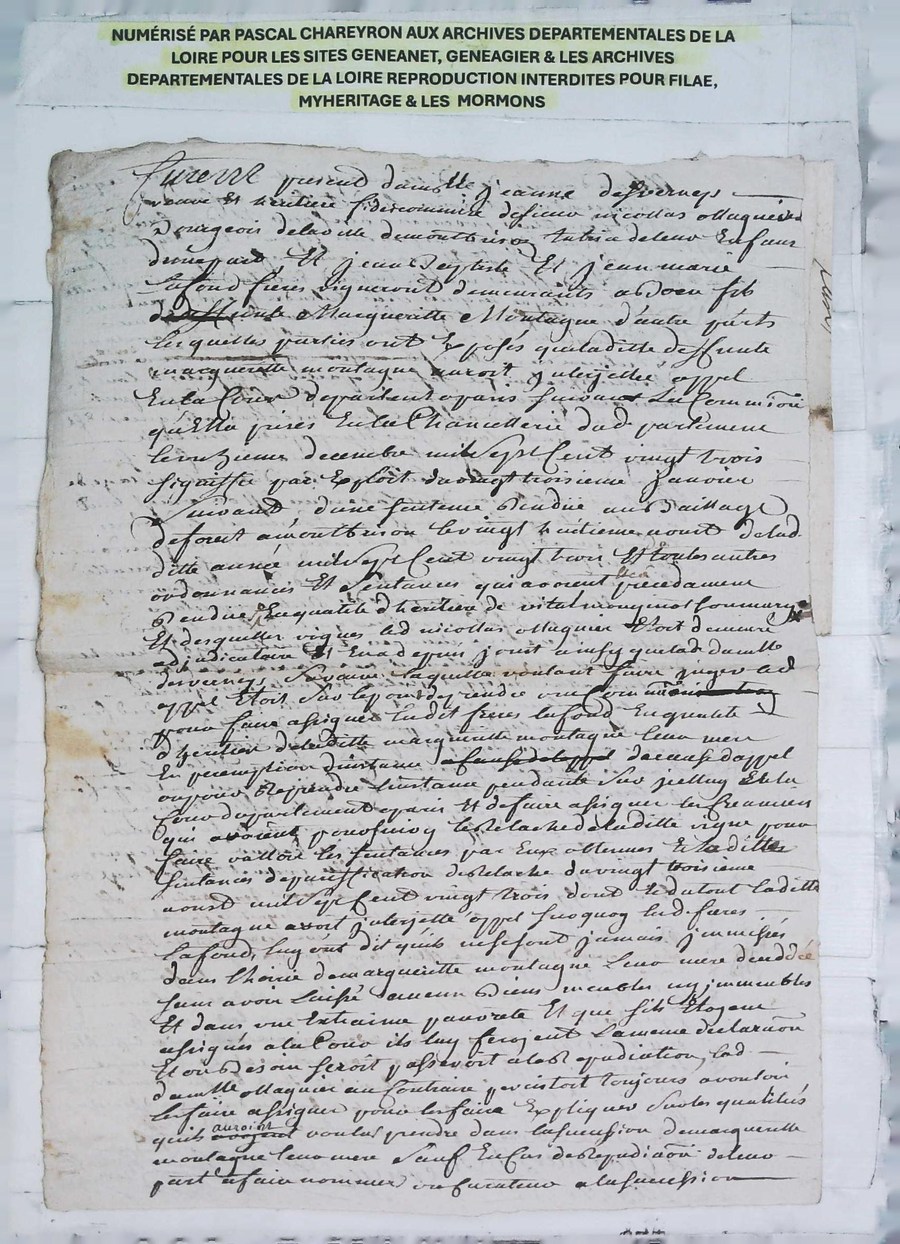 NUMÉRISÉ PAR PASCAL CHAREYRON AUX ARCHIVES DEPARTEMENTALES DE LA
LOIRE POUR LES SITES GENEANET, GENEAGIER & LES ARCHIVES
DEPARTEMENTALES DE LA LOIRE REPRODUCTION INTERDITES POUR FILAE,
MYHERITAGE & LES MORMONS
furent present damlle jeanne desverneys
veuve et heritiere fideicommise de sieur nicollas Magnier
Bourgeois de la ville de montbrison
d'une part Et jean Baptiste Et jean marie
Lafond freres vignerons demeurants a fils
Margueritte Montagne d'autre parts
Lesquelles parties ont Exposés que laditte deffunte
margueritte montagne auroit interjetté appel
En la Cour de parlement a paris suivant La Commission
qu'Elle prises En la Chancellerie dud parlement
le onzieme decembre mil Sept Cent vingt trois
signiffié par Exploit du vingt troisieme janvier
Suivant d'une sentence Rendue au Baillage
de forest a montbrison le vingt huitieme aoust de lad
ditte année mil Sept Cent vingt trois Et toutes autres
ordonnances Et Sentances qui avoient précédament
Rendue En qualité d'heritiere de vital
Et desquelles vignes led nicollas Magnier Etoit demeuré
adjudicataire Et En a depuis jouit ainsy que lad damlle
desverneys Sa veuve Laquelle voulant faire juger led
appel Etoit Sur le point de prendre une Commission
pour faire assigner lesdit freres lafond En qualité
d'heritiers de laditte margueritte montagne leur mere
En peremption d'instance de cause d'appel
ou pour Reprendre l'instance pendante Sur jcelluy En la
Cour de parlement a paris Et de faire assigner les
qui avoient poursuivy le Relache de laditte vigne pour
faire valloir les sentances par Eux obtenues Et laditte
sentances de du vingt troisieme
aoust mil Sept Cent vingt trois dont Et du tout laditte
montagne avoit jnterjetté appel Surquoy lesd freres
Lafond, luy ont dit qu'ils ne se sont jamais jmmisés
dans l'hoirie de margueritte montagne Leur mere
sans avoir Laissé aucun Biens meubles ny jmmeubles
Et dans une Extraime pauvreté Et que s'ils Etoyent
assignés a la Cour ils luy feroyent La meme declaration
Et ou Besoin seroit passeroit a la Repudiation, lad
damlle Magnier au Contraire persistoit toujours a vouloir
les faire assigner pour les faire Expliquer Sur les qualités
qu'ils auroint voulus prendre dans la sucession de margueritte
montagne leur mere Sauf En Cas de Repudiation de leur
part a faire nommer un Curateur a la sucession